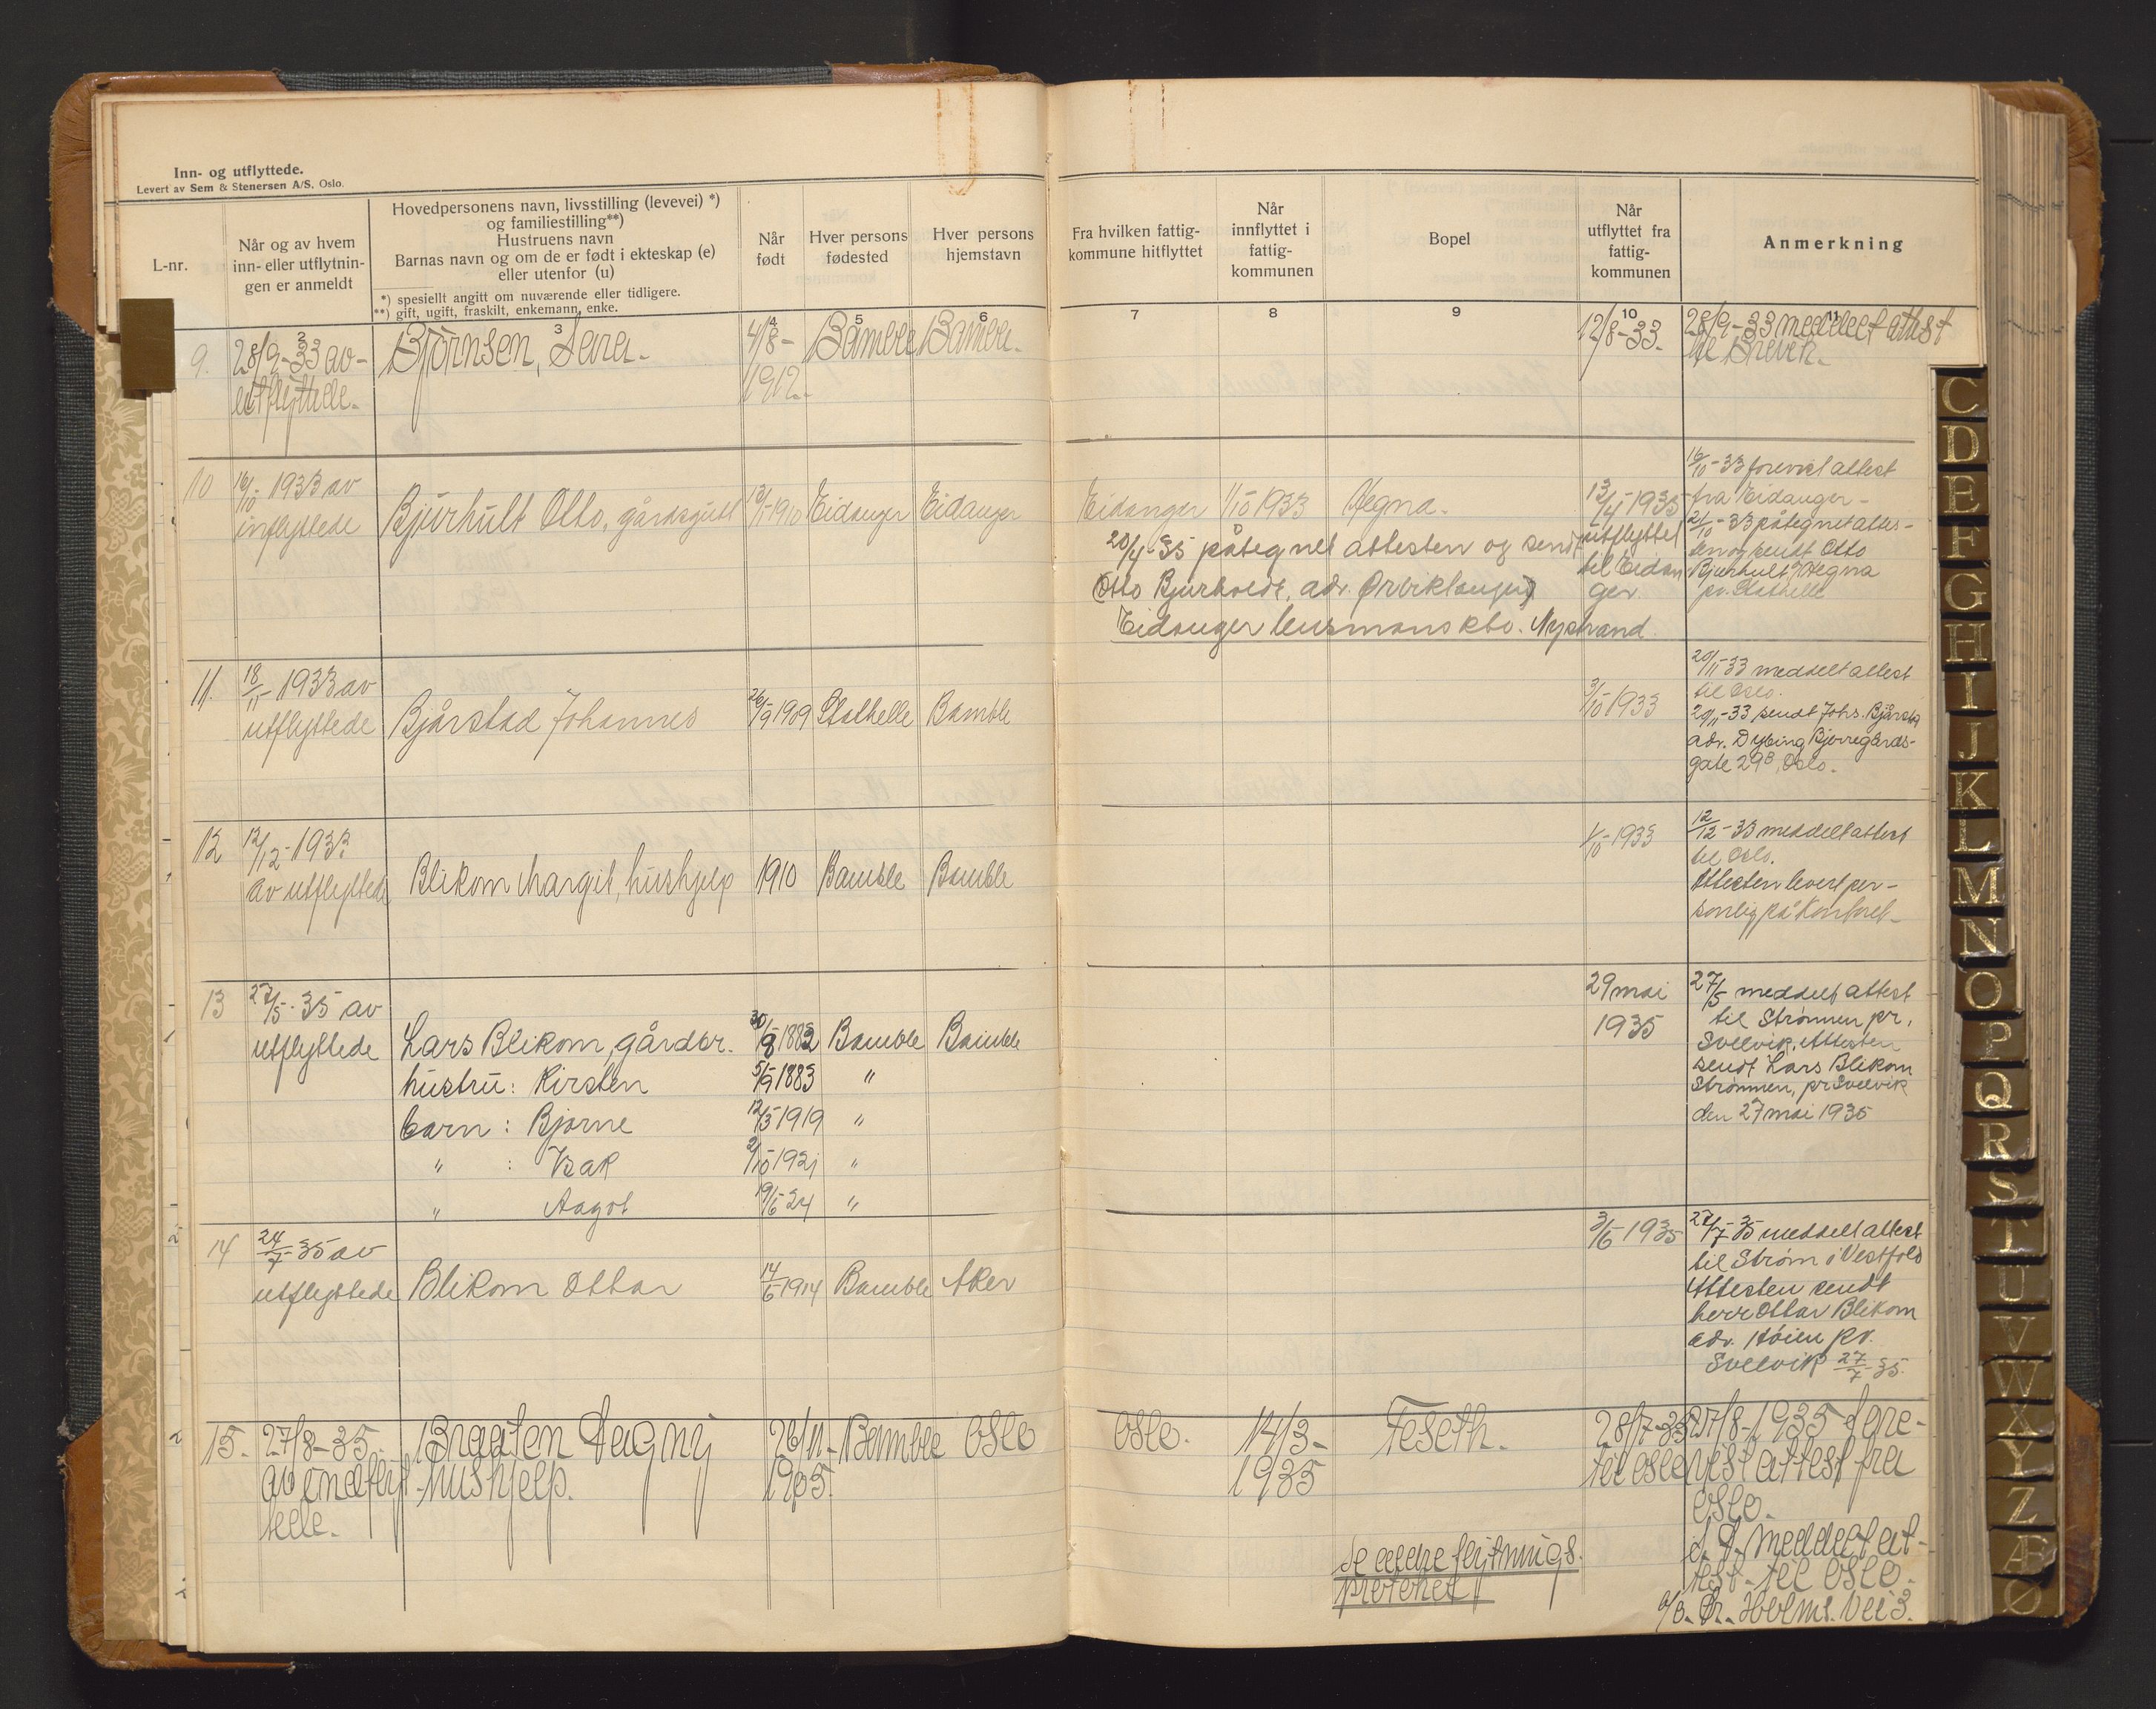 Inn- og utflyttede.
Levert av Sem & Stenersen A/S. Oslo.
L-nr.
Når og av hvem
inn- eller utflytnin-
gen er anmeldt
Hovedpersonens navn, livsstilling (levevei) *)
og familiestilling**)
Hustruens navn
Barnas navn og om de er født i ekteskap (e)
eller utenfor (u)
*) spesiellt angitt om nuværende eller tidligere.
**) gift, ugift, fraskilt, enkemann, enke.
Når
født
Hver persons
fødested
Hver persons
hjemstavn
Fra hvilken fattig-
kommune hitflyttet
Når
innflyttet i
fattig-
kommunen
Bopel
Når
utflyttet fra
fattig-
kommunen
Anmerkning
2 3 4 5 6 7 8 9 10 11
9. 28/9-33 av- Bjørnsen, Sara. 4/8- Bamble Bamble. 12/8-33. 28/9-33 meddelt attest
utflyttede. 1912. til Brevik.
10 16/10-1933 av Bjurhult Otto, gårdsgutt 13/1-1910 Eidanger Eidanger Eidanger 1/10 1933 Hegna. 13/4-1935
innflyttede
utflyttet
til Eidan
ger.
20/4-35 påtegnet attesten og sendt
Otto Bjurholdt, adr. Ørviktangen)
Eidanger lensmanskto. Nystrand.
16/10-33 forevist attest
fra Eidanger-
21/10-33 påtegnet attes-
ten og sendt Otto
Bjurhult, Hegna
pr. Stathelle
11. 18/11-1933 av
utflyttede Bjårstad Johannes 26/9-1909 Stathelle Bamble 3/10 1933
20/11-33 meddelt attest
til Oslo.
20/11-33 sendt Johs. Bjårstad
adr. Dybing Bjerregårds-
gate 29B, Oslo.
12 12/12-1933
av utflyttede Blikom Margit, hushjelp 1910 Bamble Bamble 1/10-1933
12/12-33 meddelt attest
til Oslo.
Attesten levert per-
sonlig på kontoret-
13 27/5-35 av
utflyttede Lars Blikom, gårdbr. 30/8 1882 Bamble Bamble 29 mai
1935
hustru: Kirsten 5/9 1883 "
barn: Bjarne 12/5 1919 "
" : Isak 2/10-1921 "
" Aagot 19/6-24 "
27/5 meddelt attest
til Strømmen pr.
Svelvik. Attesten
sendt Lars Blikom
Strømmen, pr Svelvik
den 27 mai 1935
14 24/7-35 av
utflyttede Blikom Ottar 14/6-1914 Bamble Aker 3/6 1935
27/7-35 meddelt attest
til Strøm i Vestfold
Attesten sendt
herr Ottar Blikom
adr. Høien pr.
Svelvik 27/7-35.
15. 27/8-35. Braaten Dagny 26/11- Bamble Oslo Oslo. 14/3- Feseth. 28/7-35
av inflyt- hushjelp. 1905. 1935 til Oslo
tede.
27/8-1935 fore-
vist attest fra
Oslo.
s. d. meddelt at-
test til Oslo.
Se ældre flytnings.
protokol
Dr. Holms. Vei 3.
C
D
E
F
G
H
I
J
K
L
M
N
O
P
Q
R
S
T
U
V
W
X
Y
Z
Æ
Ø